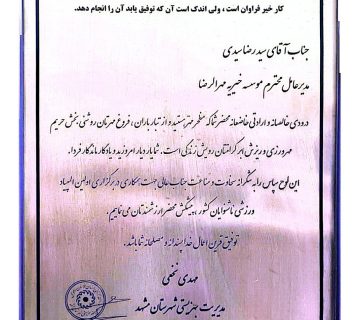 کار خیر فراوان است ، ولی اندک است آن که توفیق یابد آن را انجام دهد.
جناب آقای سید رضا سیدی
مدیر عامل محترم موسسه خیریه مهر الرضا
درودی خالصانه و ارادتی خاضعانه محضر شما که مظهر مهر هستید و از تبار باران ، فروغ مهرتان روشنی بخش حریم
مهرورزی و ریزش ابر کرامتتان رویش زندگی است . شما یار دیار امروزید و یادگار ماندگار فردا.
این لوح سپاس را به شکرانه سخاوت و مناعت جناب عالی جهت همکاری در برگزاری اولین المپیاد
ورزشی ناشنوایان کشور ، پیشکش محضر ارزشمندتان می نماییم.
توفیق قرین اعمال خداپسندانه و مصلحانه شما باشد.
مهدی نخعی
مدیریت بهزیستی شهرستان مشهد